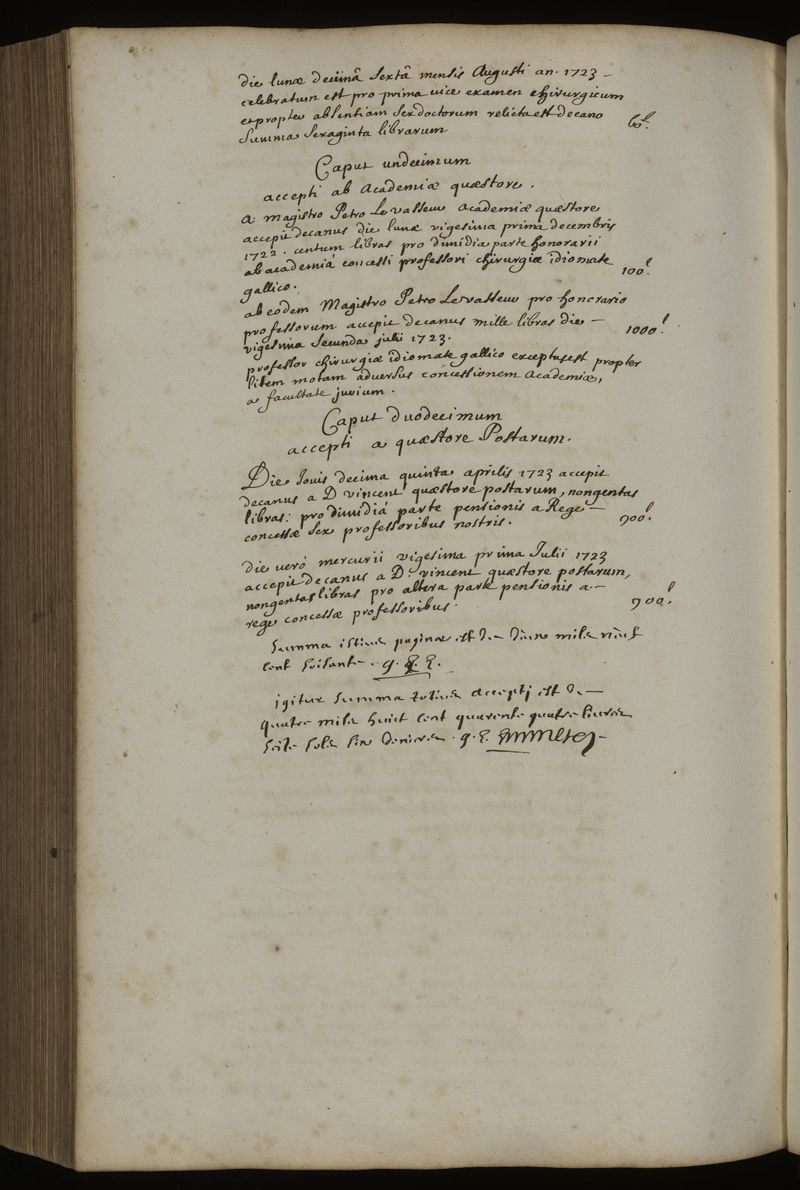 die lunæ decimâ sextâ mensis Augusti an. 1723 –
celebratum est pro prima vice examen chirurgicum
et propter absentiam sex doctorum relicta est decano
Summa sexaginta librarum 60.l
Caput undecimum
accepti ab Academiæ quæstore.
a Magistro Petro Levasseur academiæ quæstore
accepit decanus die lunæ vigesima prima decembris
1722. centum libras pro dimidia parte honorarii
ab academiâ concessi professori chirurgiæ idiomate
gallico. 100.l
ab eodem Magistro Petro Levasseur pro honorario
professorum accepit decanus mille libras die –
vigesima secunda julii 1723. 1000.l
professor chirurgiæ idiomate gallico exceptus est propter
litem motam adversus concessionem academiæ,
a facultate jurium.
Caput duodecimum
accepti a quæstore Postarum.
Die Jovis decima quinta aprilis 1723 accepit
decanus a D vincent quæstore postarum, nongentas
libras: pro dimidiâ parte pensionis a Rege –
concessæ sex professoribus nostris. 900.l
die verò mercurii vigesima prima Julii 1723
accepit decanus a D. vincent quæstore postarum,
nongentas libras pro altera parte pensionis a –
rege concessæ professoribus. 900.l
Summa istius paginæ est de deux mile neuf
cent soisante.
igitur Summa totius accepti est de –
quatre mile huict cent quarente quatre livres
sols six deniers.